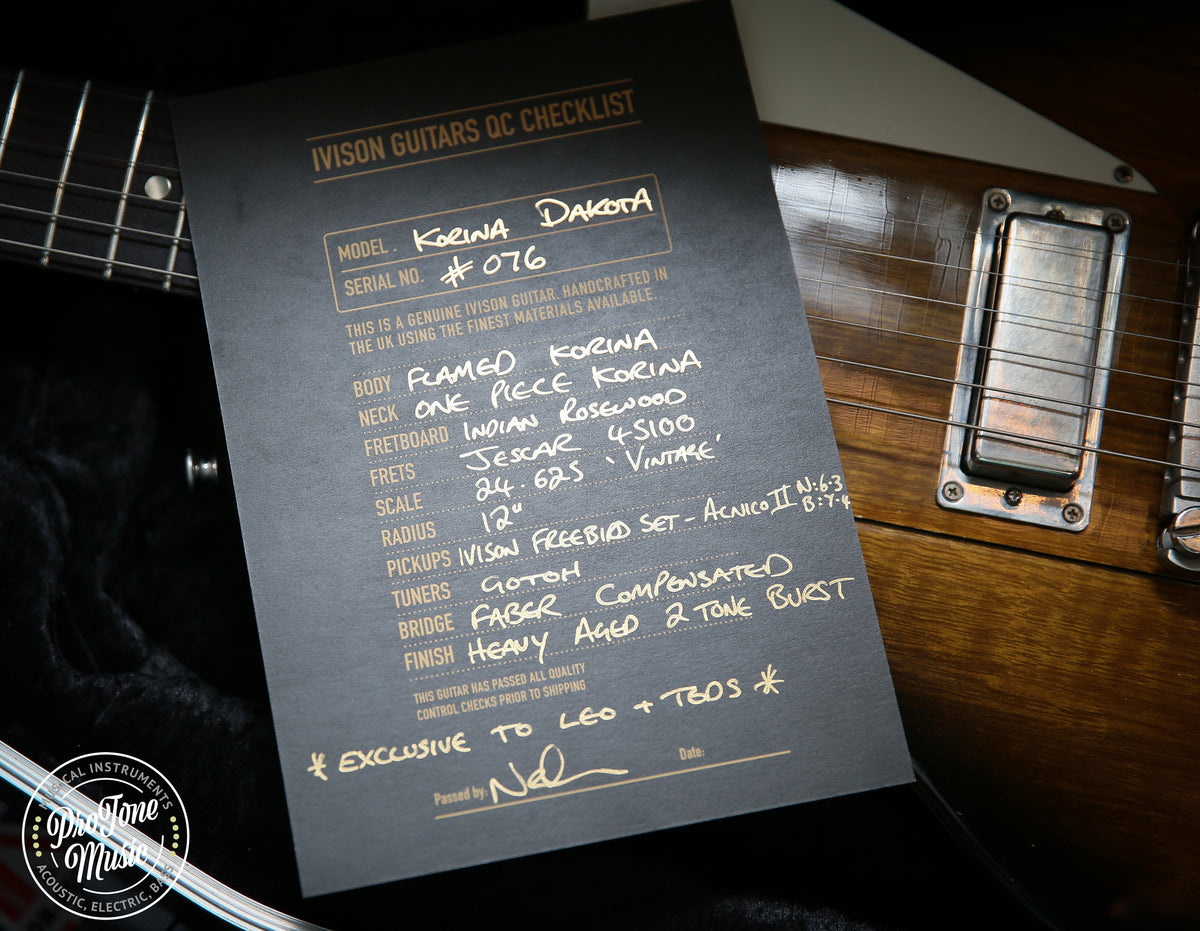 IVISON GUITARS QC CHECKLIST
MODEL. KORINA DAKOTA
SERIAL NO. #076
THIS IS A GENUINE IVISON GUITAR. HANDCRAFTED IN
THE UK USING THE FINEST MATERIALS AVAILABLE.
BODY FLAMED KORINA
NECK ONE PIECE KORINA
FRETBOARD INDIAN ROSEWOOD
FRETS JESCAR 45100
SCALE 24.625 'VINTAGE'
RADIUS 12"
PICKUPS IVISON FREEBIRD SET - ALNICO II N:6.3
B:7.4
TUNERS GOTOH
BRIDGE FABER COMPENSATED
FINISH HEAVY AGED 2 TONE BURST
THIS GUITAR HAS PASSED ALL QUALITY
CONTROL CHECKS PRIOR TO SHIPPING
* EXCLUSIVE TO LEO + TEDS *
Passed by:
Date:
MUSICAL INSTRUMENTS
ProTone
Music
ACOUSTIC, ELECTRIC, BASS